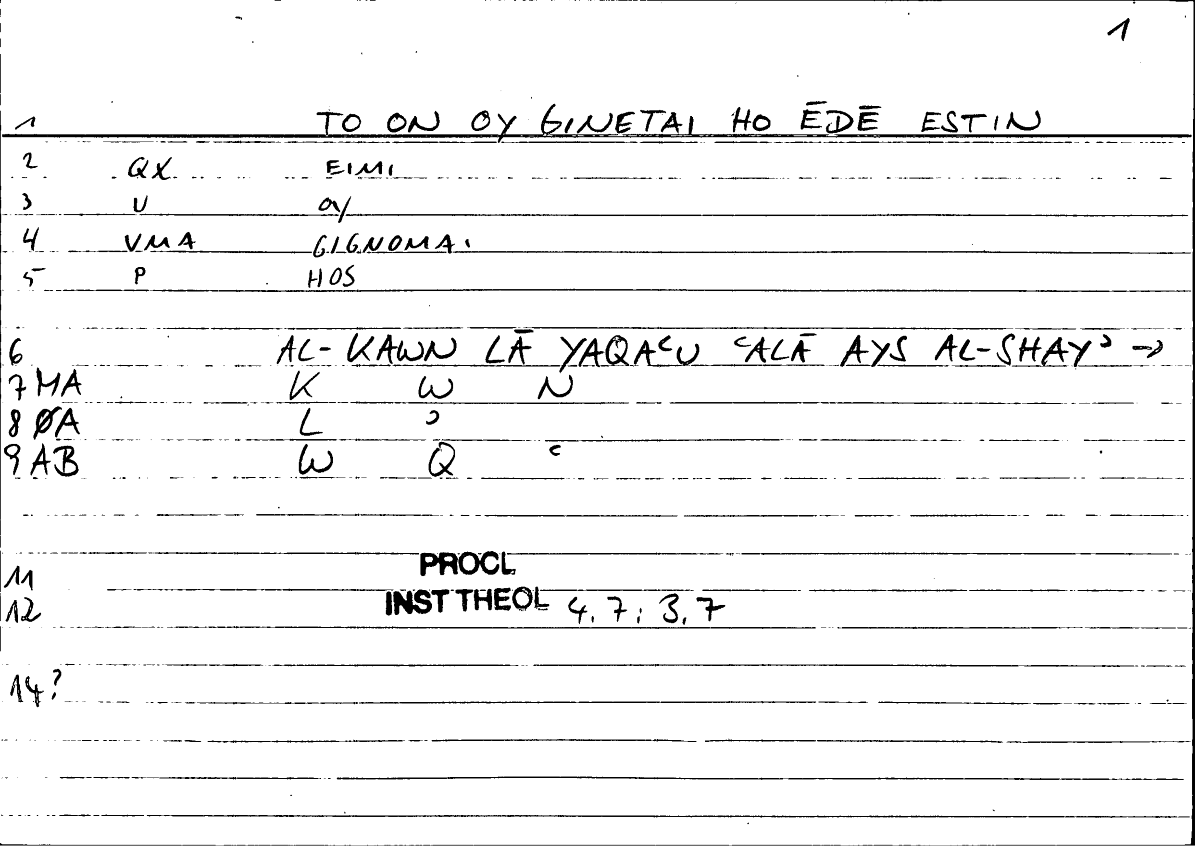 1
1 TO ON OY GINETAI HO ĒDĒ ESTIN
2 QX EIMI
3 U OY
4 VMA GIGNOMAI
5 P HOS
6 AL-KAWN LĀ YAQAʿU ʿALĀ AYS AL-SHAYʾ →
7 MA K W N
8 ØA L ʾ
9 AB W Q ʿ
11 PROCL
12 INST THEOL 4, 7; 3, 7
14?